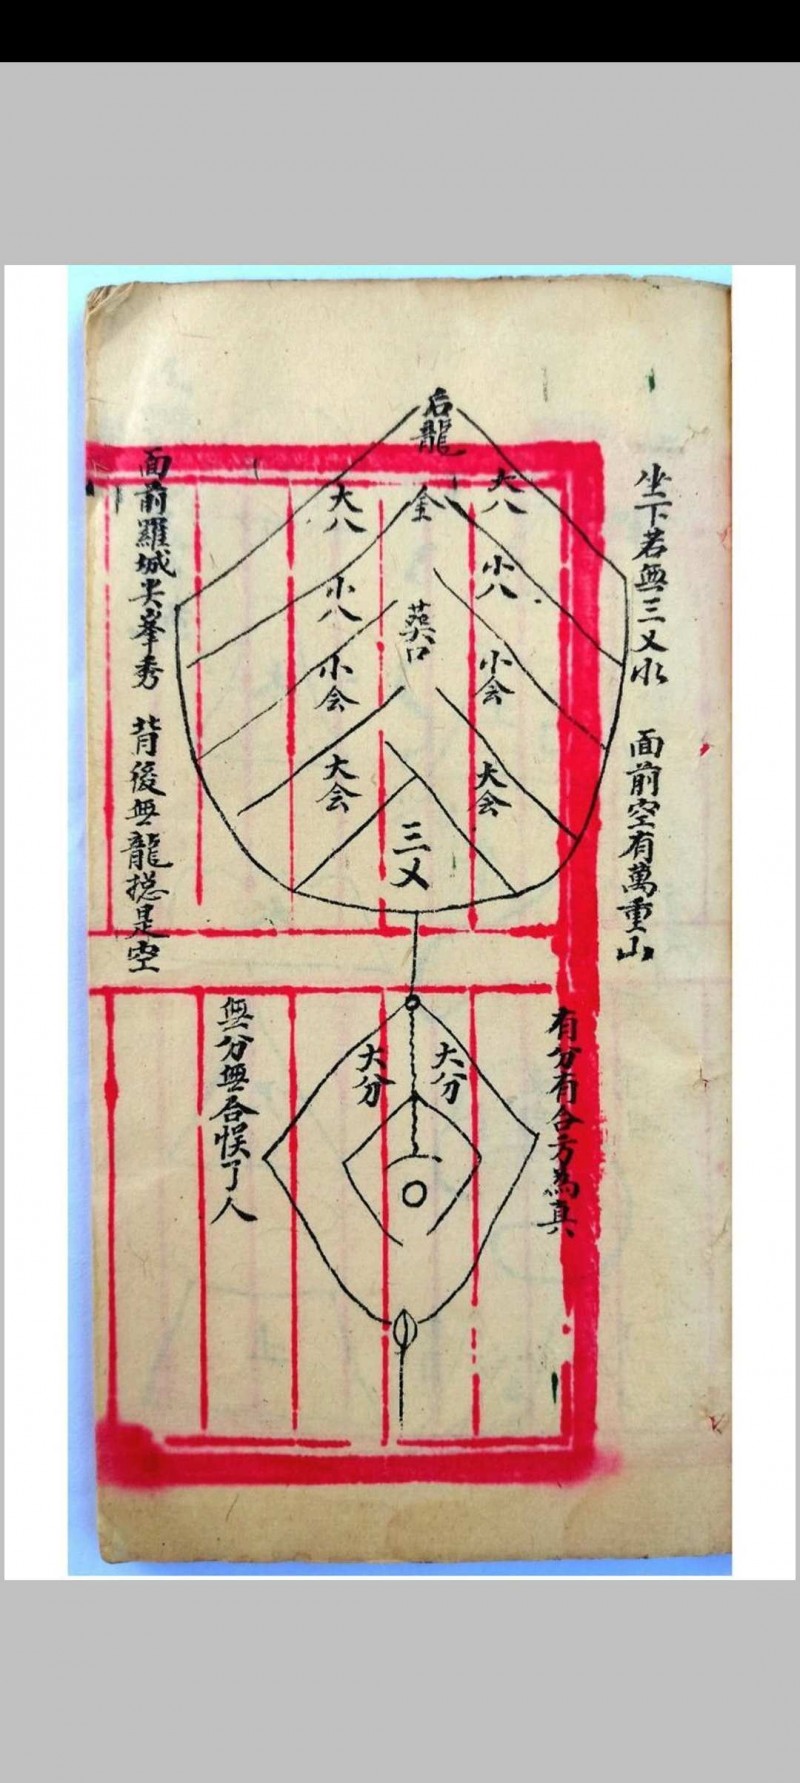 坐下若無三乂水
面前空有萬重山
后龍
大八
大八
金
小八
小八
葬口
小会
小会
大会
大会
三乂
面前羅城尖峯秀
背後無龍揔是空
有分有合方為真
大分
大分
無分無合悮了人